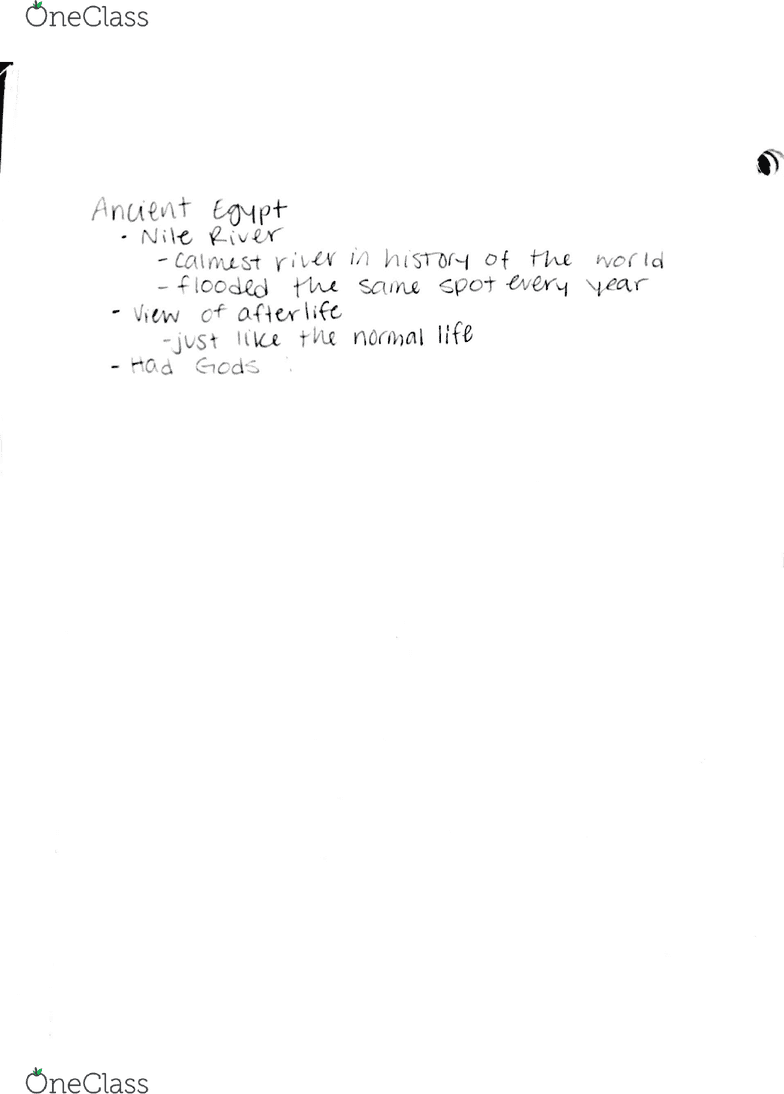 OneClass
Ancient Egypt
· Nile River
- calmest river in history of the world
- flooded the same spot every year
- View of afterlife
- just like the normal life
- Had Gods
OneClass